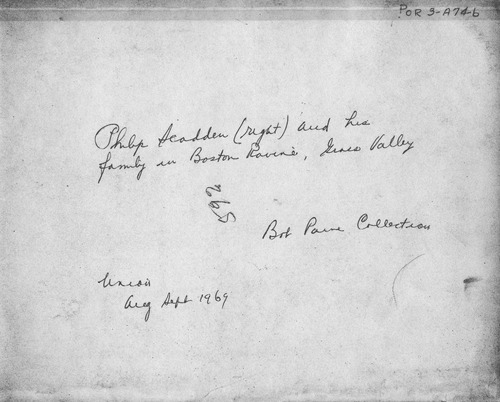 POR 3-A74-b
Philip Scadden (right) and his
family in Boston Ravine, Grass Valley
Bob Paine Collection
Union
Aug Sept 1969